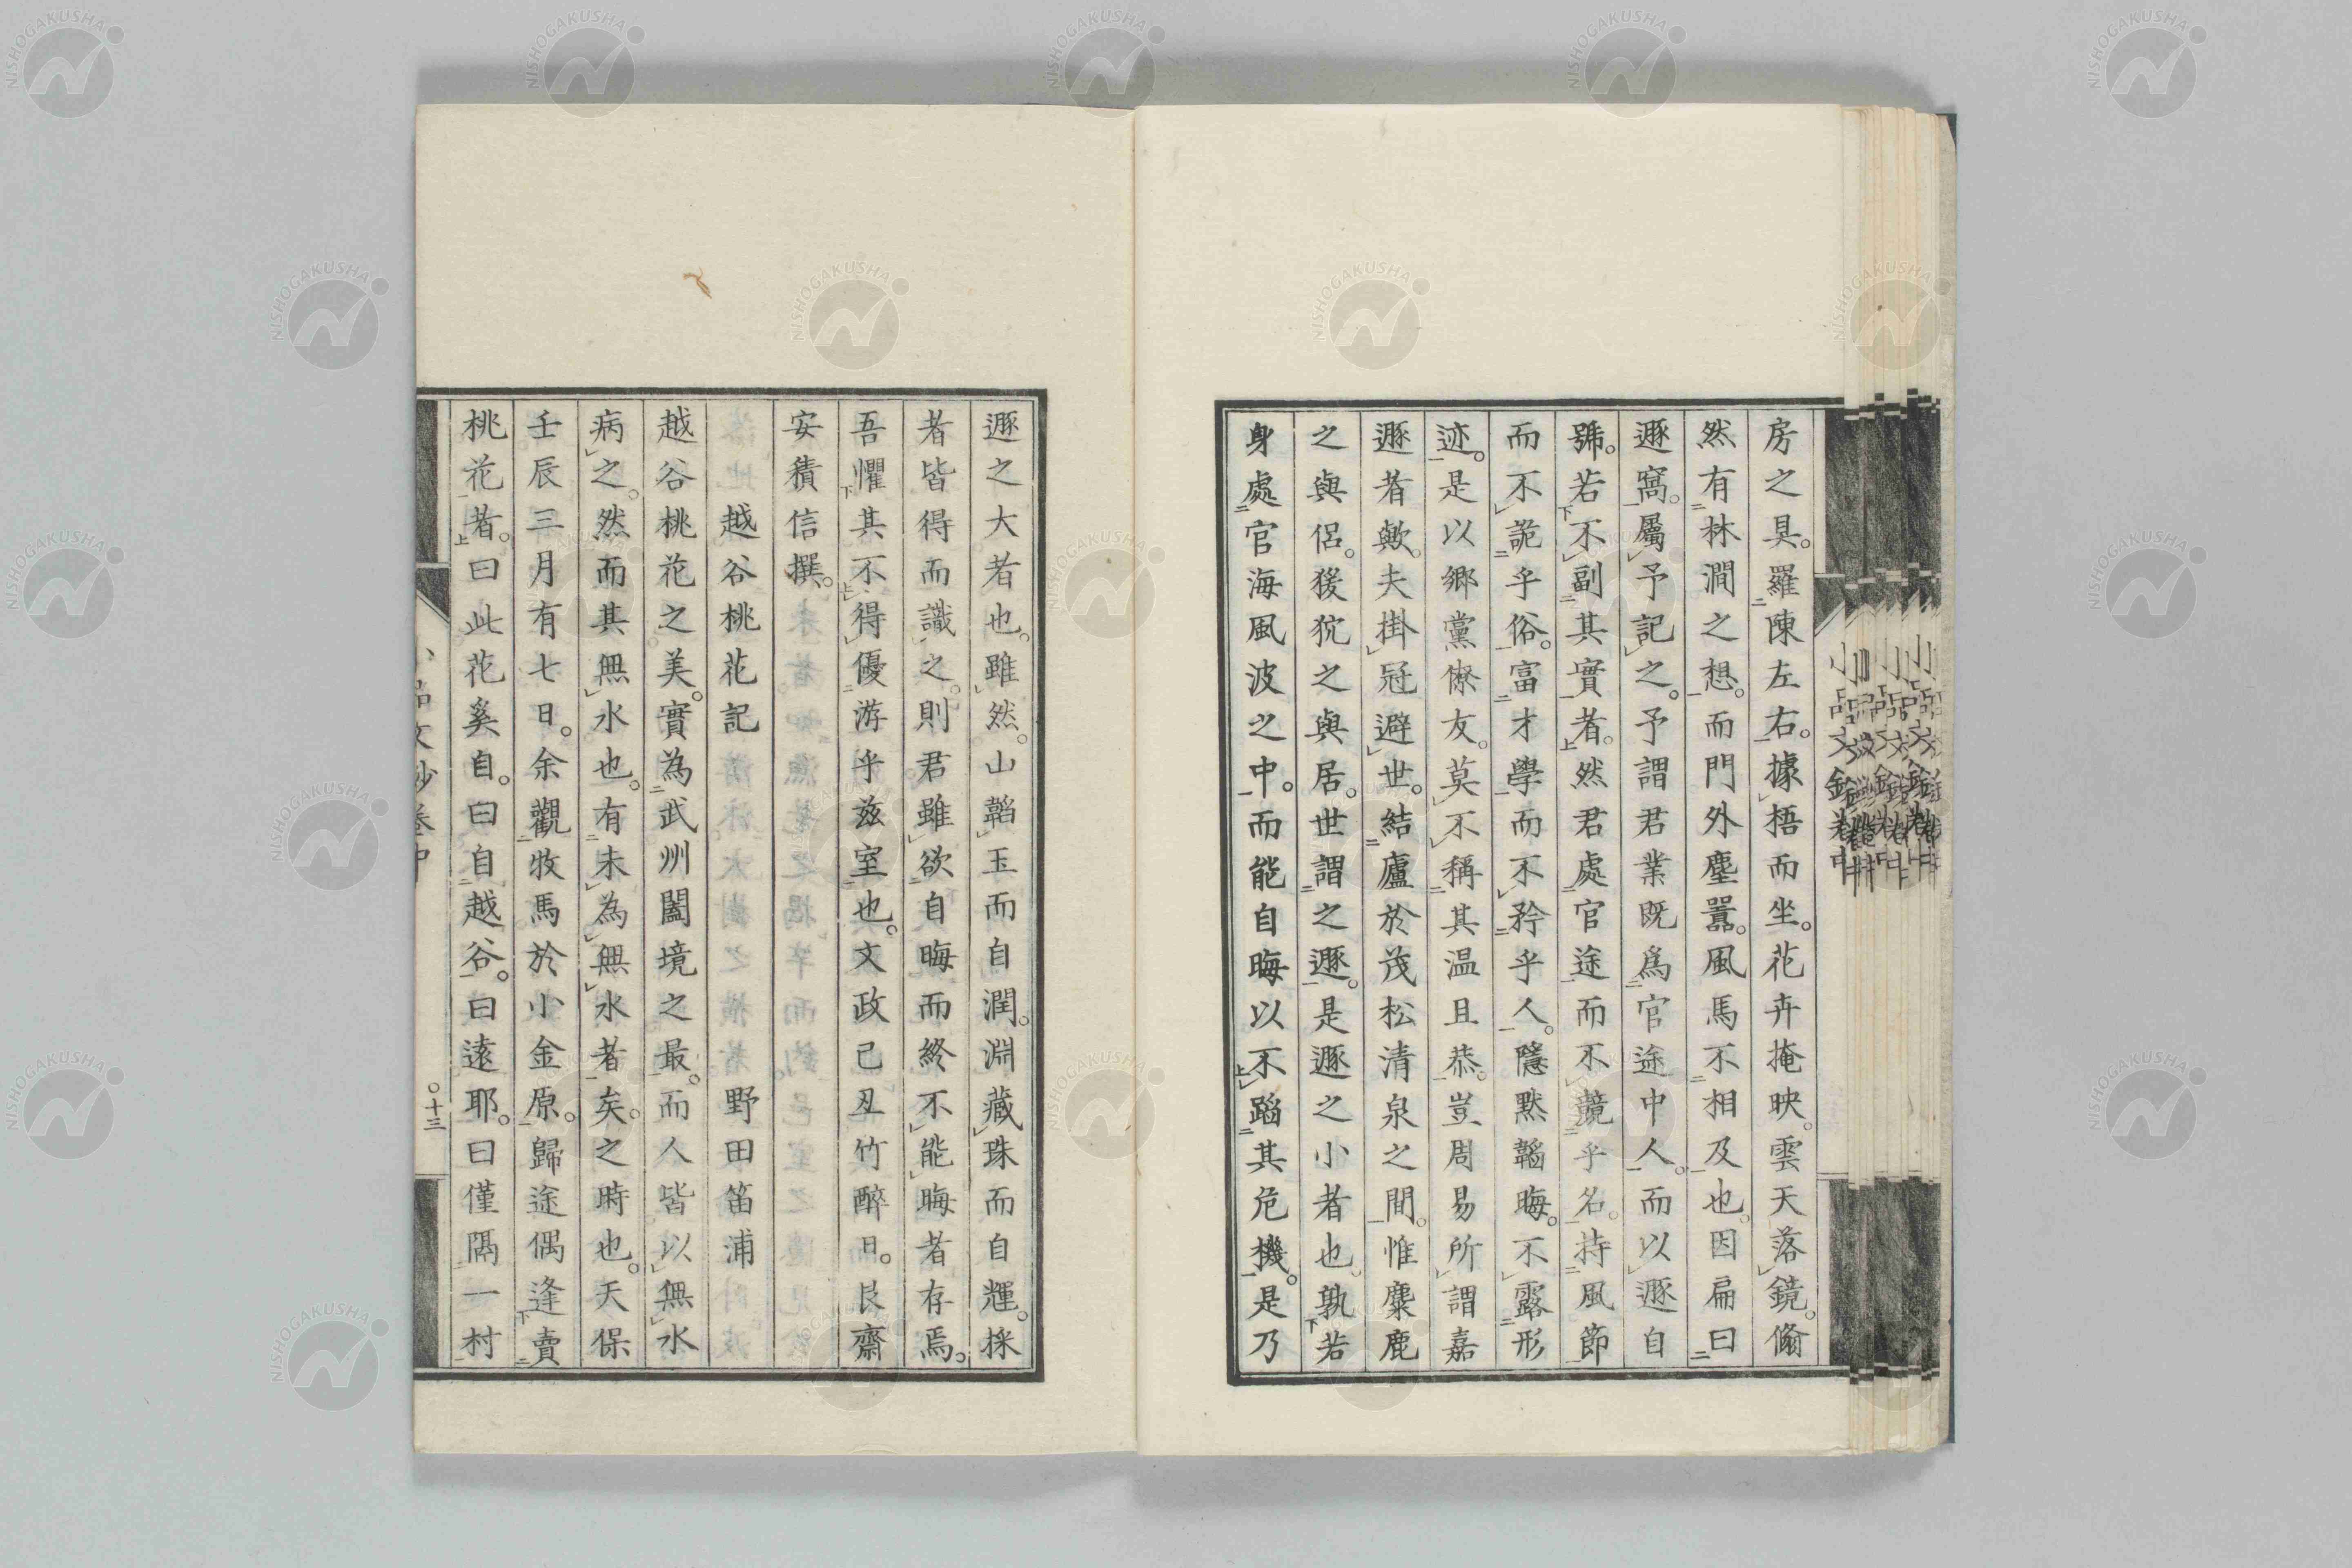 房之具。羅陳左右。據梧而坐。花卉掩映。雲天落鏡。翛
然有林澗之想。而門外塵囂。風馬不相及也。因扁曰
遯窩。屬予記之。予謂君業既爲官途中人。而以遯自
號。若不副其實者。然君處官途而不競乎名。持風節
而不詭乎俗。富才學而不矜乎人。隱默韜晦。不露形
迹。是以鄉黨僚友。莫不稱其温且恭。豈周易所謂嘉
遯者歟。夫掛冠避世。結廬於茂松清泉之間。惟麋鹿
之與侶。猨狖之與居。世謂之遯。是遯之小者也。孰若
身處官海風波之中。而能自晦以不蹈其危機。是乃
遯之大者也。雖然。山韜玉而自潤。淵藏珠而自輝。採
者皆得而識之。則君雖欲自晦而終不能晦者存焉。
吾懼其不得優游乎茲室也。文政己丑竹醉日。艮齋
安積信撰。
越谷桃花記 野田笛浦
越谷桃花之美。實為武州闔境之最。而人皆以無水
病之。然而其無水也。有未為無水者矣。之時也。天保
壬辰三月有七日。余觀牧馬於小金原。歸途偶逢賣
桃花者。曰此花奚自。曰自越谷。曰遠耶。曰僅隔一村
小品文鈔卷中
〇十三
NISHOGAKUSHA